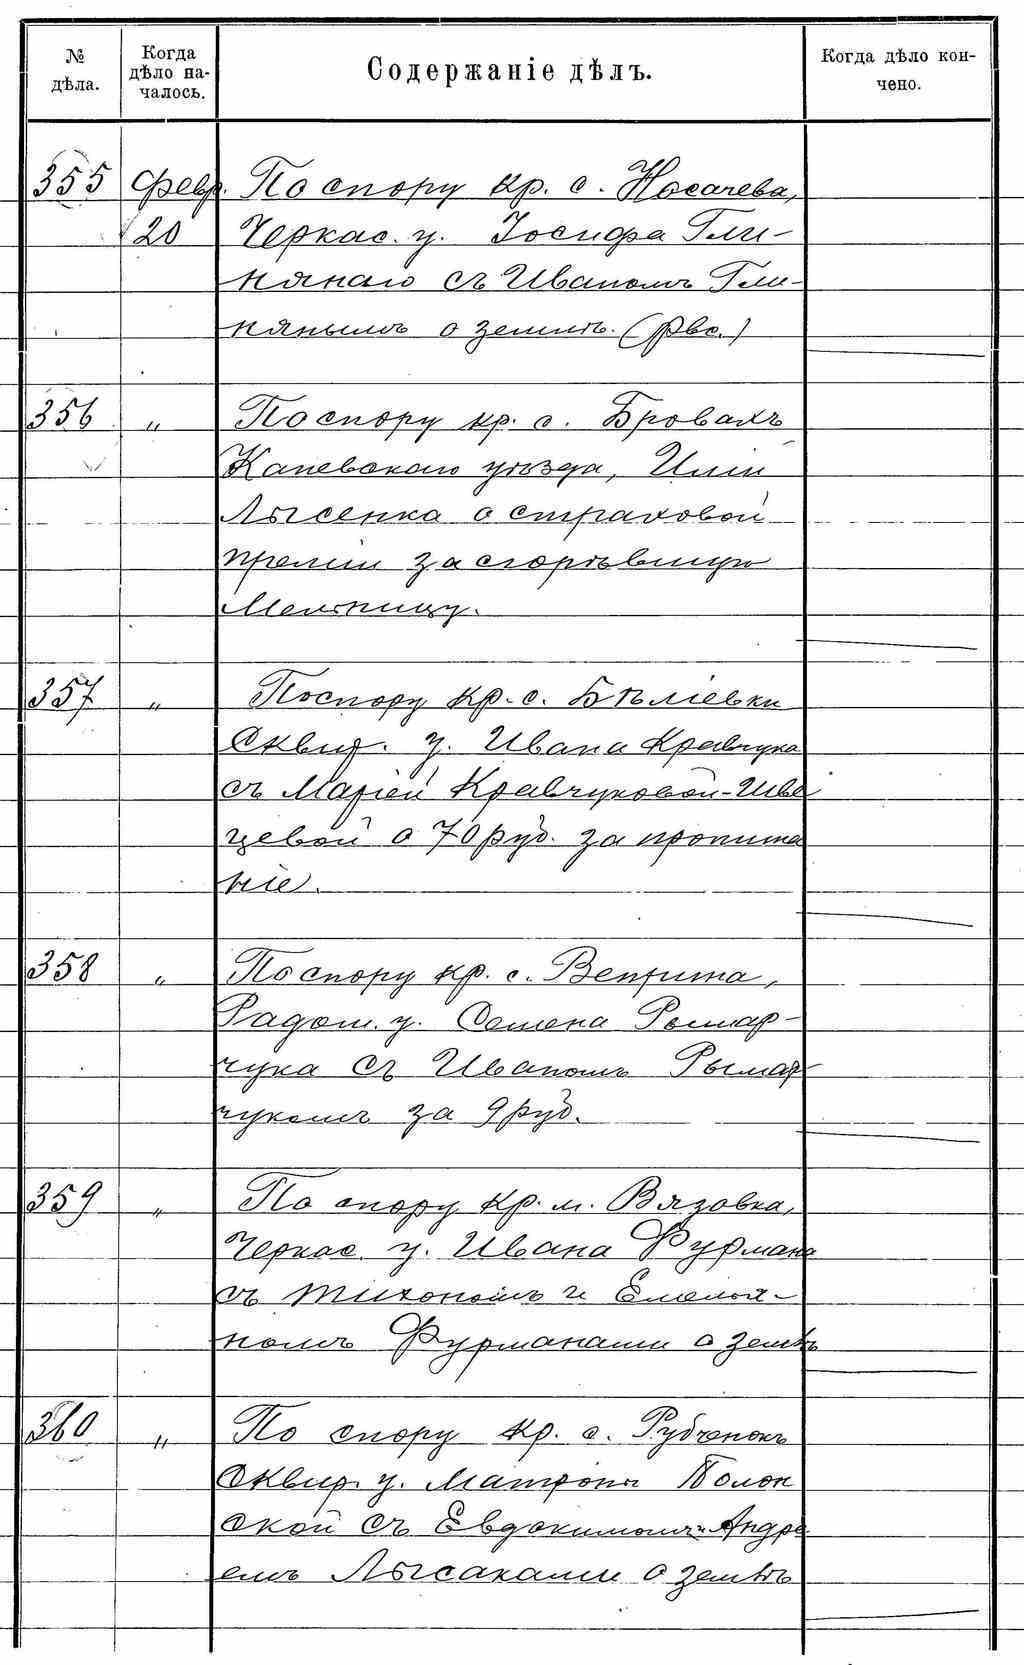 № дѣла.
Когда дѣло началось.
Содержаніе дѣлъ.
Когда дѣло кончено.
355 Февр. По спору кр. с. Носачева,
20 Черкас. у. Іосифа Гли-
нянаго съ Иваномъ Гли-
нянымъ о землѣ. (Рвс.)
356 „ По спору кр. с. Бровахъ
Каневскаго уѣзда, Иліи
Лысенка о страховой
преміи за сгорѣвшую
мельницу.
357 „ По спору кр. с. Бѣліевки
Сквир. у. Ивана Кравчука
съ Маріей Кравчуковой-Шве
цевой о 70 руб. за пропита
ніе.
358 „ По спору кр. с. Веприна,
Радом. у. Семена Рымар-
чука съ Иваномъ Рымар-
чукомъ за 9 руб.
359 „ По спору кр. м. Вязовка,
Черкас. у. Ивана Фурмана
съ Тихономъ и Емелья-
номъ Фурманами о землѣ
360 „ По спору кр. с. Рубченокъ
Сквир. у. Матроны Полон
ской съ Евдокимомъ и Андре
емъ Лысаками о землѣ